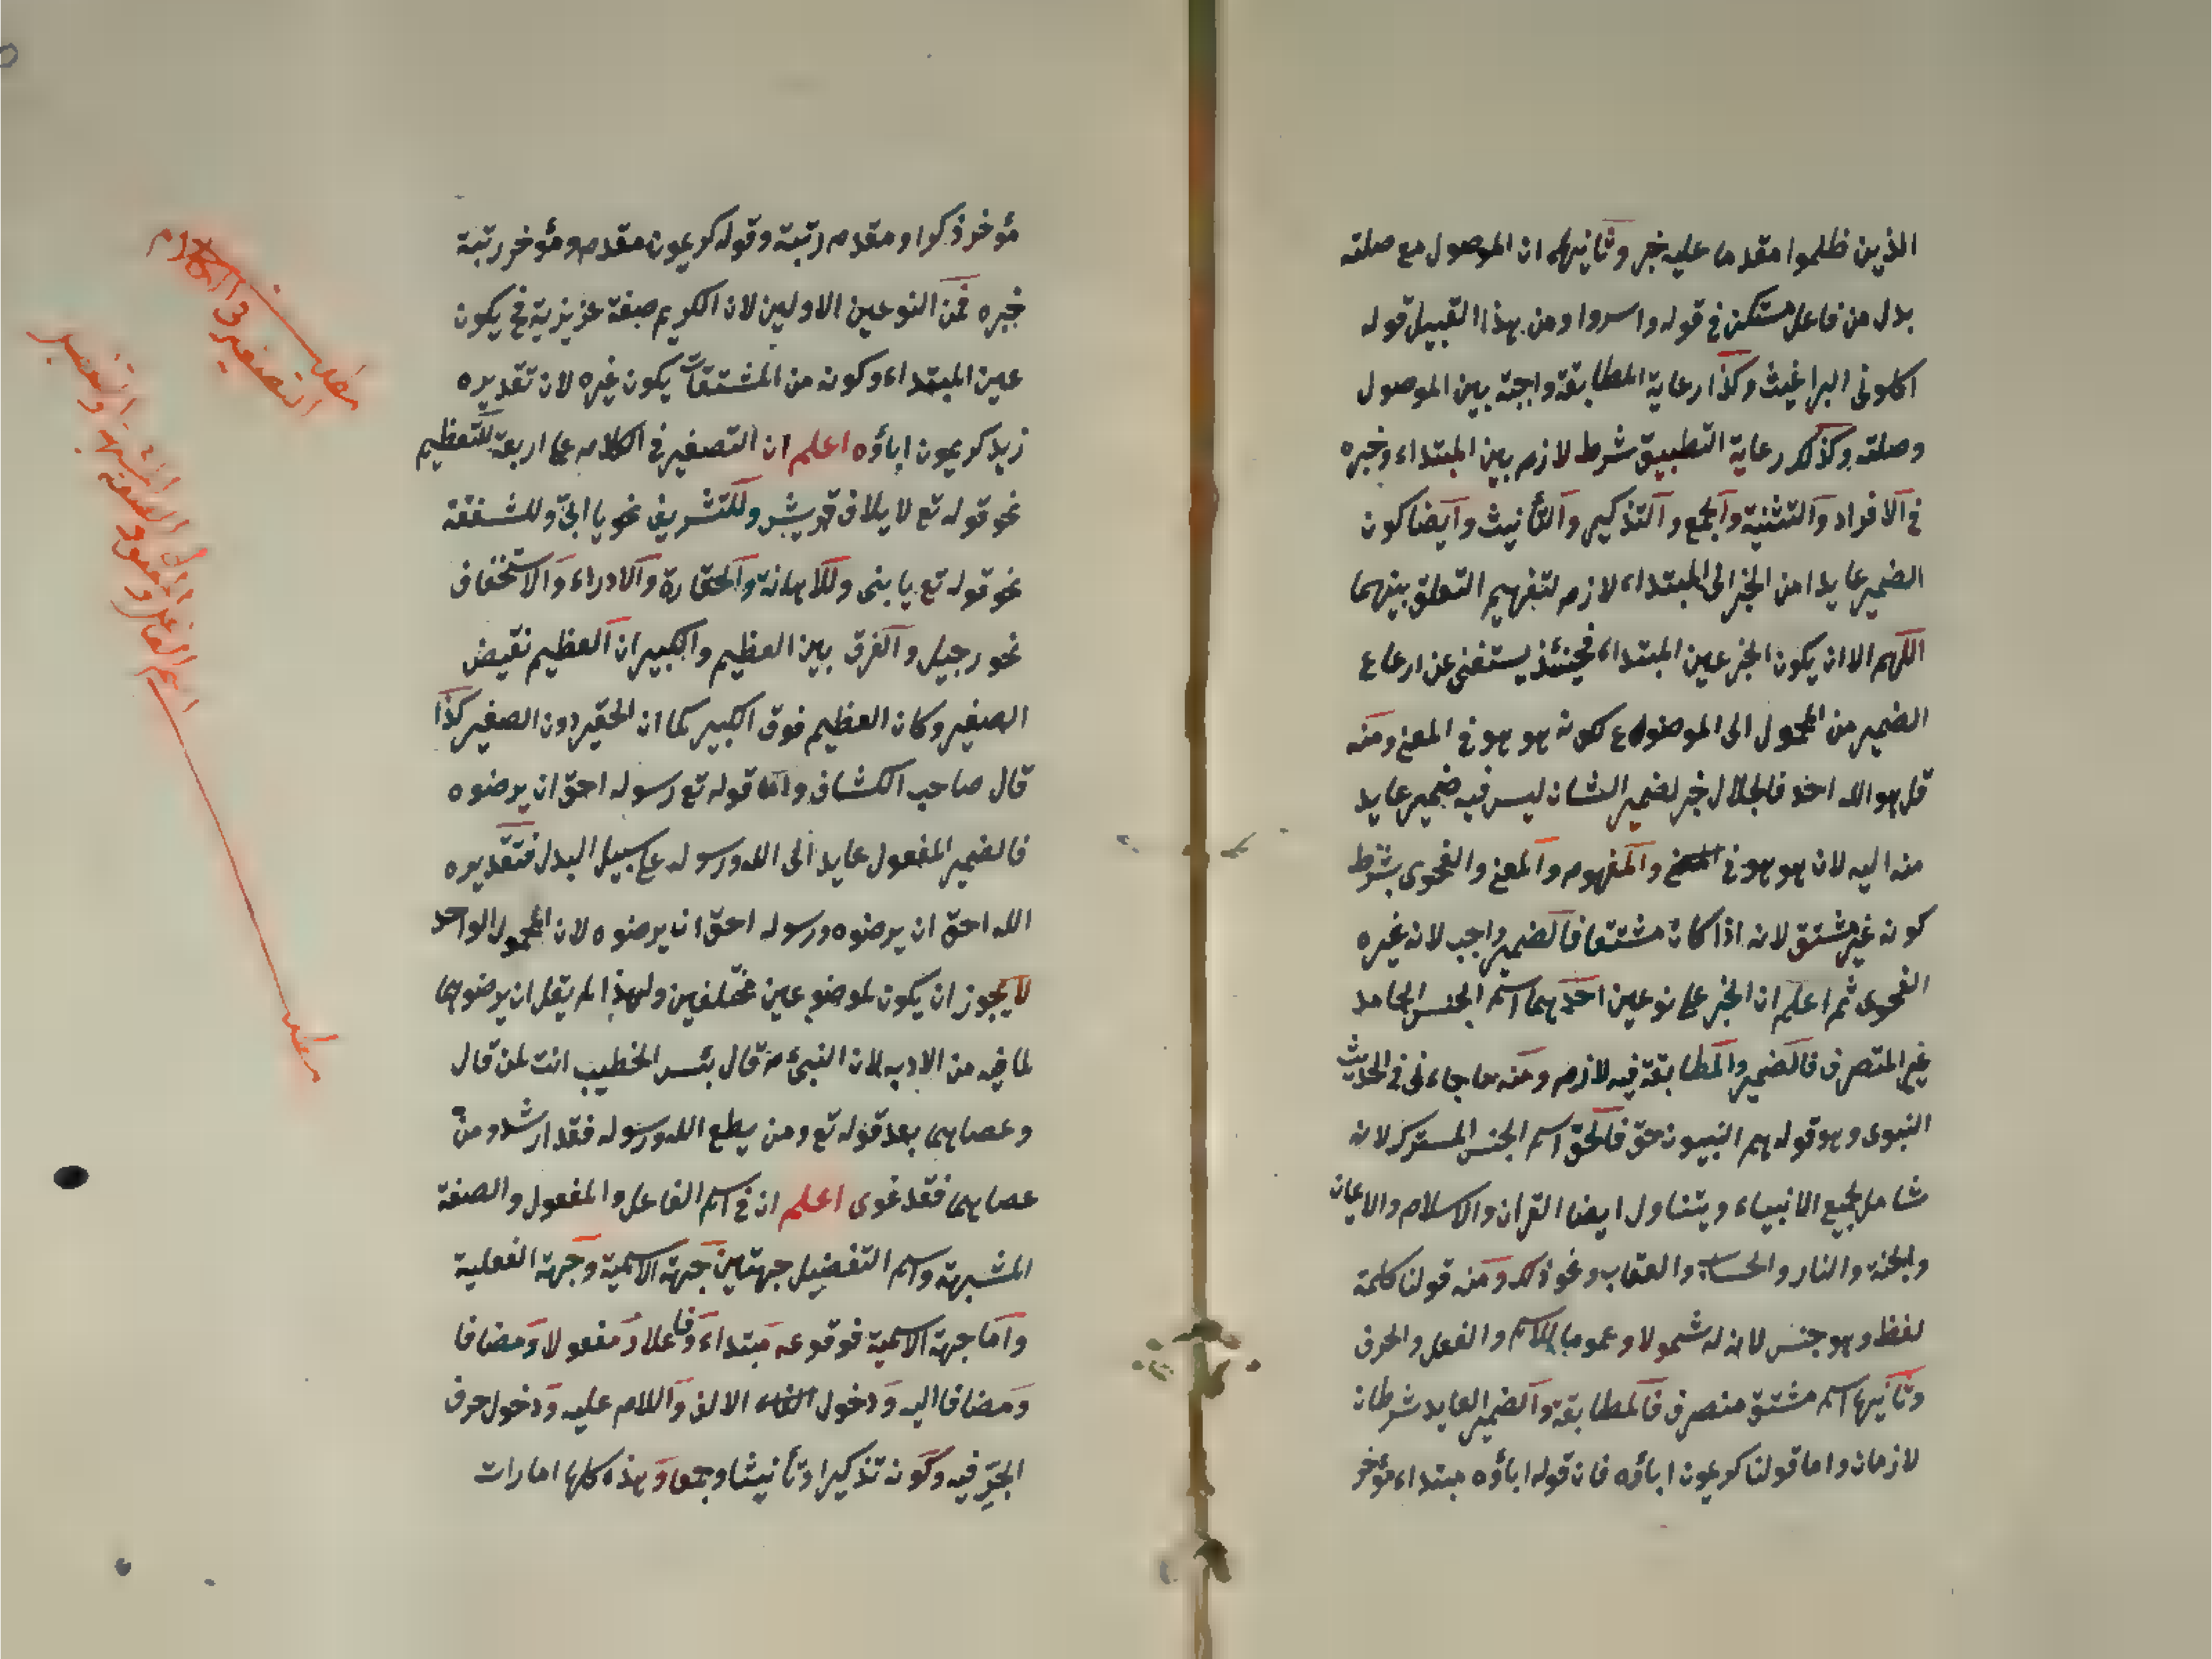 الذين ظلموا مقدما عليه خبر وثانيهما ان الموصول مع صلته
بدل من فاعل مستكن في قوله واسروا ومن بهذا القبيل قوله
اكلونى البراغيث وكذا رعاية المطابقة واجبة بين الموصول
وصلته وكذلك رعاية التطبيق شرط لازم بين المبتداء وخبره
في الافراد والتثنية والجمع والتذكير والتأنيث وايضا كون
الضمير عايدا من الخبر الى المبتداء لازم لتفهيم التعلق بينهما
اللهم الا ان يكون الخبر عين المبتداء فحينئذ يستغنى عن ارجاع
الضمير من المحمول الى الموضوع لكونه هو هو في المعنى ومنه
قل هو الله احد فالجلال خبر لضمير الشان ليس فيه ضمير عايد
منه اليه لانه هو هو في والمفهوم والمعنى والفحوى بشرط
كونه غير مشتق لانه اذا كان مشتقا فالضمير واجب لانه غيره
الفحوى ثم اعلم ان الخبر على نوعين احدهما اسم الجنس الجامد
غير المتصرف فالضمير والمطابقة فيه لازم ومنه ما جاءنى في الحديث
النبوى وهو قوله هم النبيون حق فالحق اسم الجنس المشترك لانه
شامل لجميع الانبياء ويتناول ايضا القران والاسلام والايمان
والجنة والنار والحساب والعقاب ونحو ذلك ومنه قولنا كلمة
لفظ وهو جنس لانه له شمولا وعموما للاسم والفعل والحرف
وثانيهما اسم مشتق منصرف فالمطابقة والضمير العايد شرطان
لازمان واما قولنا كريمون اباؤه فان قوله اباؤه مبتداء مؤخر
مؤخر ذكرا ومقدم رتبة وقوله كريمون مقدم ومؤخر رتبة
خبره فمن النوعين الاولين لان الكريم صفة عزيزية فح يكون
عين المبتداء وكونه من المشتقات يكون غيره لان تقديره
زيد كريمون اباؤه اعلم ان التصغير في الكلام على اربعة للتعظيم
نحو قوله تع لايلاف قريش وللتشريف نحو يا ابى وللشفقة
نحو قوله تع يا بنى وللاهانة والحقارة والادراء والاستخفاف
نحو رجيل والفرق بين العظيم والكبير ان العظيم نقيض
الصغير وكان العظيم فوق الكبير كما ان الحقير دون الصغير كذا
قال صاحب الكشاف واما قوله تع رسوله احق ان يرضوه
فالضمير المفعول عايد الى الله ورسوله على سبيل البدل فتقديره
الله احق ان يرضوه ورسوله احق ان يرضوه لان المحمول الواحد
لا يجوز ان يكون لموضوعين مختلفين ولهذا لم يقل ان يرضوهما
لما فيه من الادب لان النبى ء م قال بئس الخطيب انت لمن قال
وعصاهما بعد قوله تع ومن يطع الله ورسوله فقد ارشد ومن
عصاهما فقد غوى اعلم ان في اسم الفاعل والمفعول والصفة
المشبهة واسم التفضيل جهتين جهة الاسمية وجهة الفعلية
واما جهة الاسمية فوقوعه مبتداء وفاعلا ومفعولا ومضافا
ومضافا اليه ودخول الالف واللام عليه ودخول حرف
الجر فيه وكونه تذكيرا وتأنيثا وجمعا وهذه كلها امارات
مطلب
التصغير في الكلام
مطلب
اسم الفاعل والمفعول
والصفة المشبهة